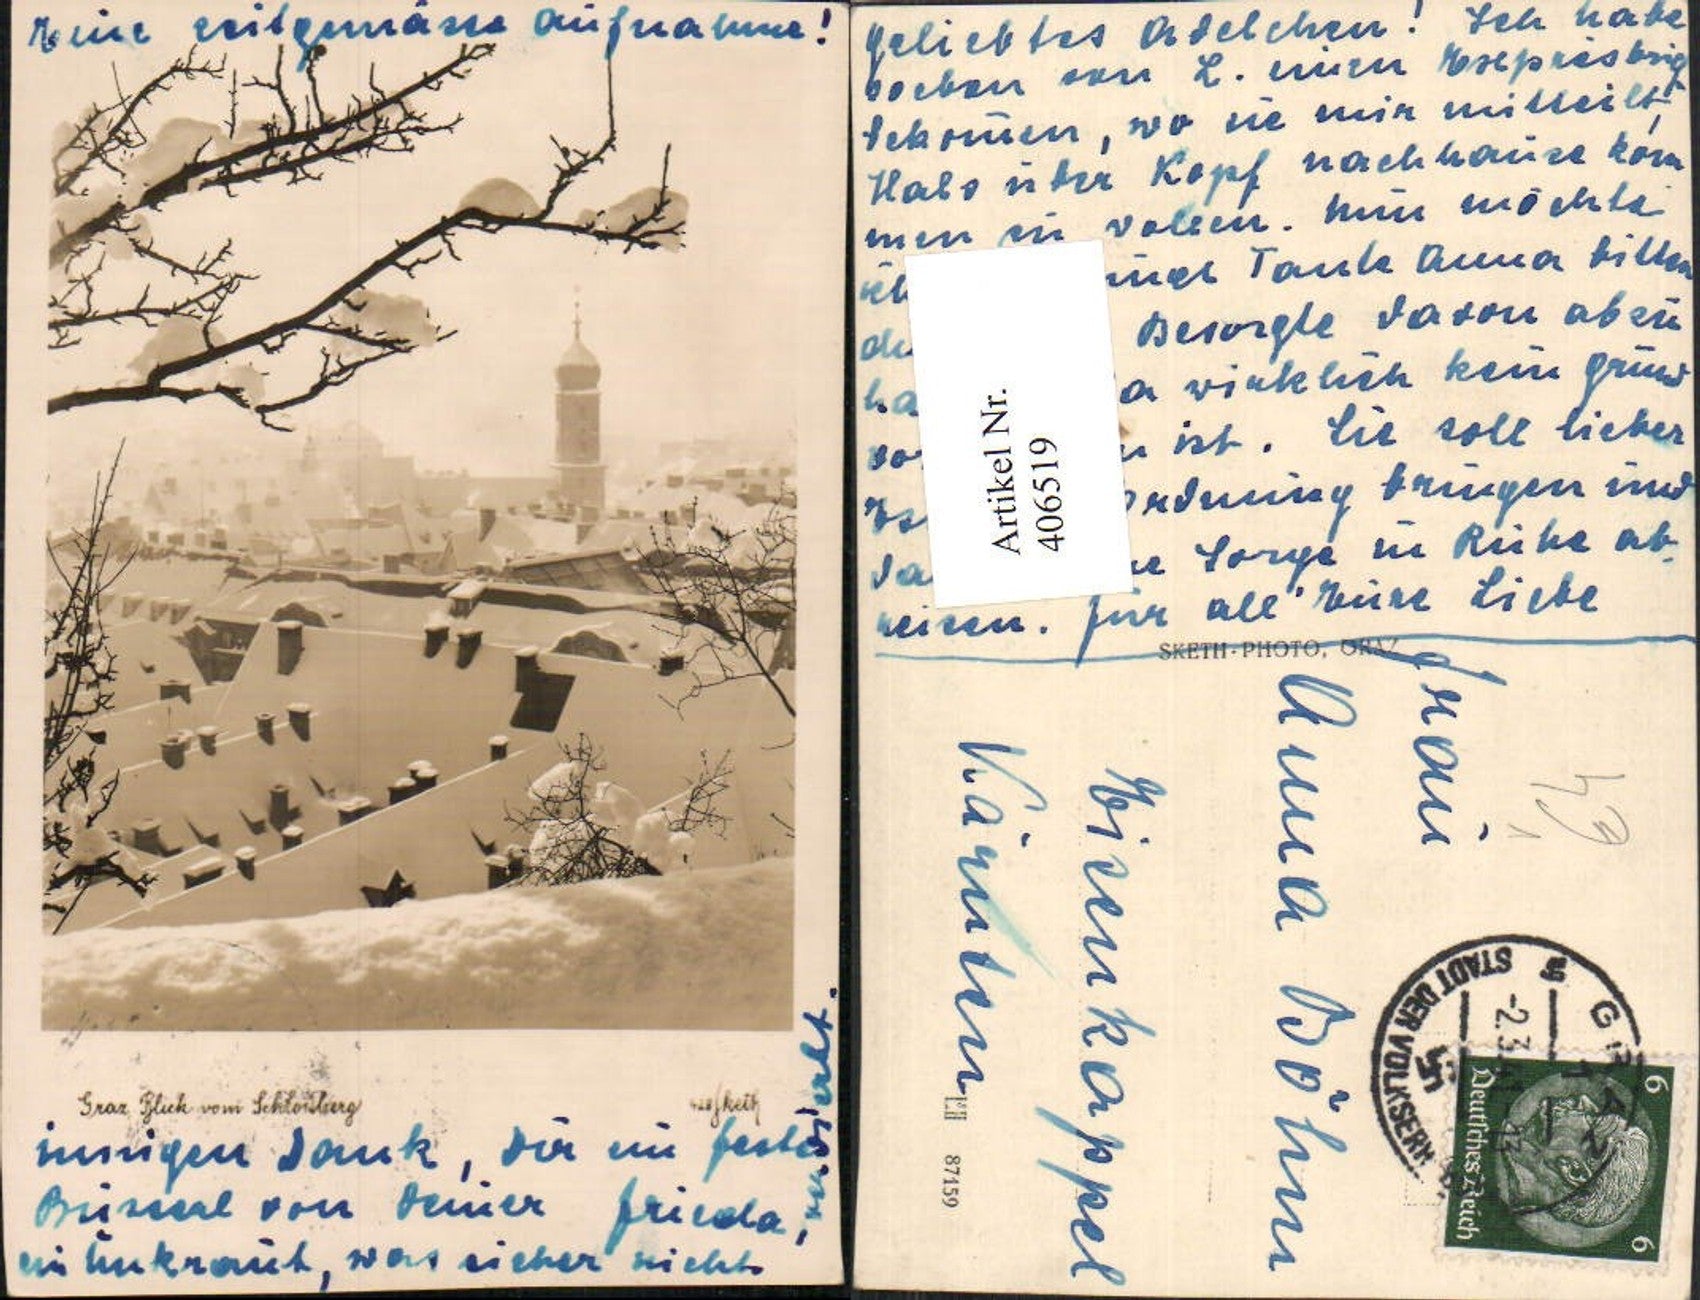 Keine zeitgemässe Aufnahme!
Graz Blick vom Schlossberg
innigen Dank, Dir ein festes
Busserl von Deiner Frieda,
ein Unkraut, was sicher nicht
verdirbt.
Geliebtes Adelchen! Ich habe
soeben von L. einen
bekommen, wo sie mir mitteilt,
Hals über Kopf nachhause kom
men zu wollen. Nun möchte
ich Tante Anna bitten
Besorgte davon abzu
ha wirklich kein Grund
vor ist. Sie soll lieber
Ordnung bringen und
Sorge in Ruhe ab-
reisen. Für all' Eure Liebe
Artikel Nr.
406519
SKETH-PHOTO, GRAZ
Frau
Anna Böhm
Eisenkappel
Kärnten
87159
49
1
GRAZ
STADT DER VOLKSERH
-2.3.41
6
6
Deutsches Reich